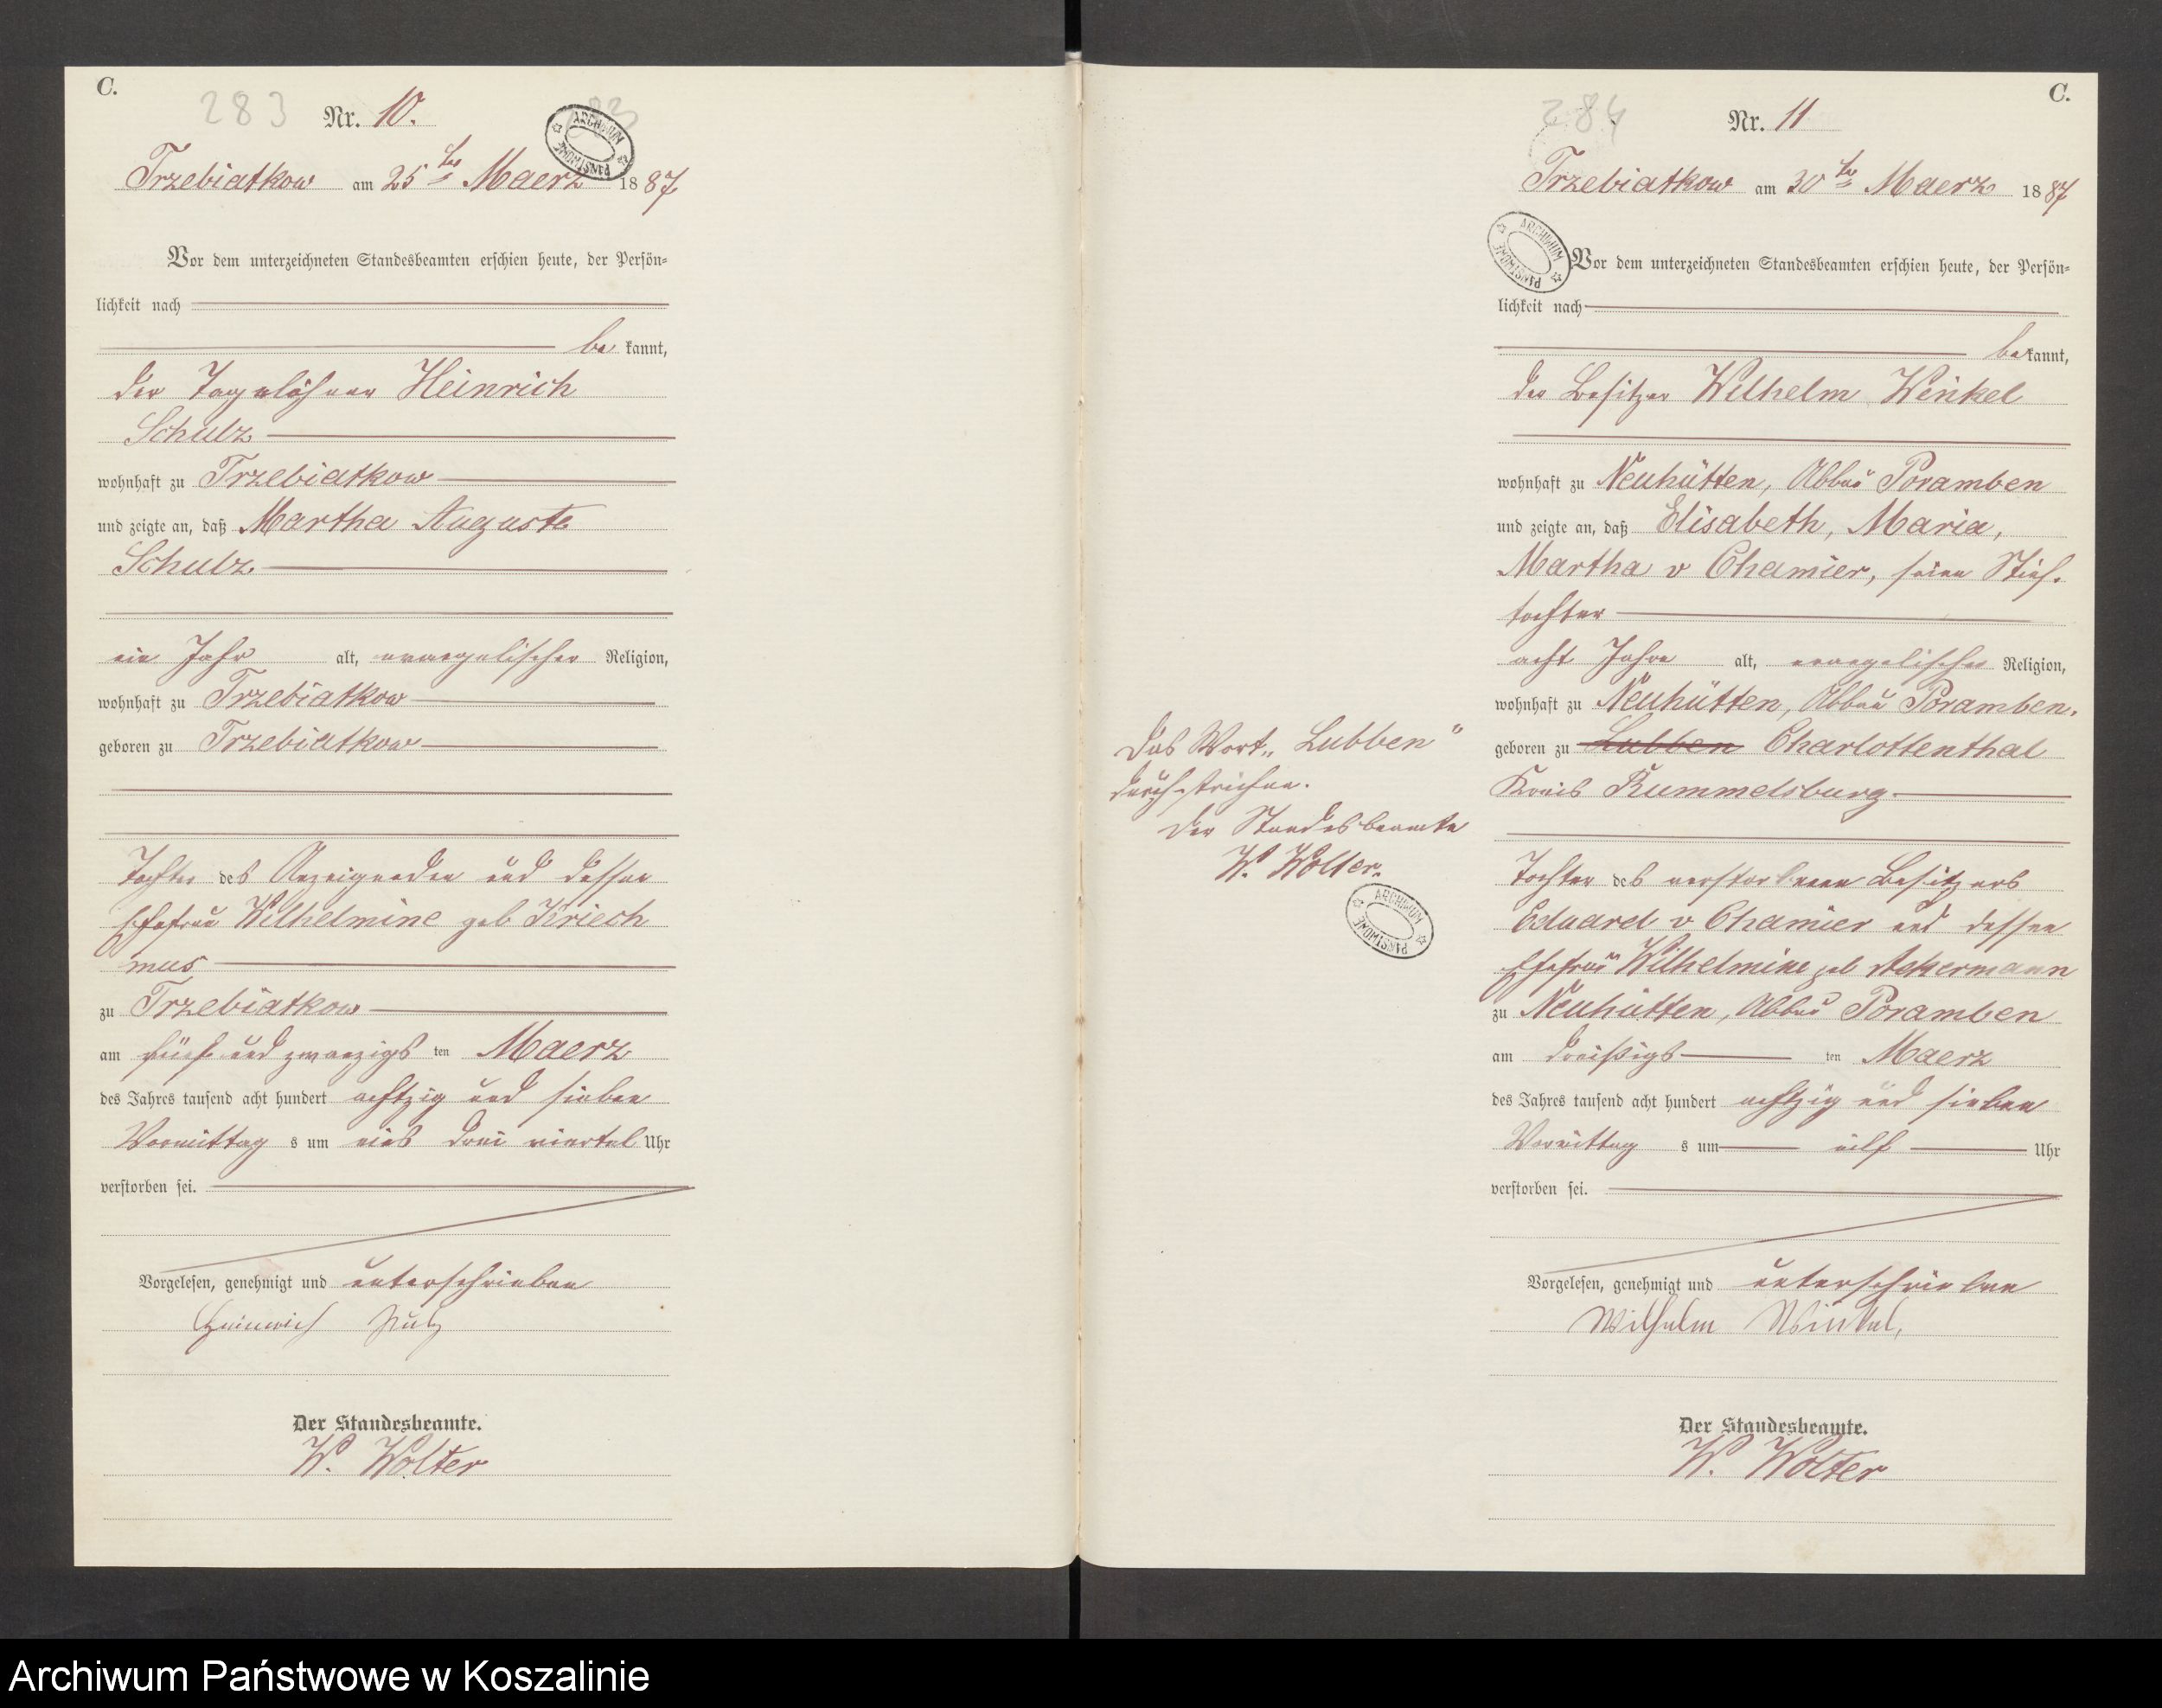 C.
283
Nr. 10.
ARCHIWUM PAŃSTWOWE
Trzebiatkow am 25ten Maerz 1887
Vor dem unterzeichneten Standesbeamten erschien heute, der Persön-
lichkeit nach
be kannt,
der Tagelöhner Heinrich
Schulz
wohnhaft zu Trzebiatkow
und zeigte an, daß Martha Auguste
Schulz
ein Jahr alt, evangelischer Religion,
wohnhaft zu Trzebiatkow
geboren zu Trzebiatkow
Tochter des Anzeigenden und dessen
Ehefrau Wilhelmine geb Kriech
mus
zu Trzebiatkow
am fünf und zwanzigs ten Maerz
des Jahres tausend acht hundert achtzig und sieben
Vormittag s um eins drei viertel Uhr
verstorben sei.
Vorgelesen, genehmigt und unterschrieben
Heinrich
Der Standesbeamte.
W. Wolter
C.
284
Nr. 11
Trzebiatkow am 30ten Maerz 1887
ARCHIWUM PAŃSTWOWE
Vor dem unterzeichneten Standesbeamten erschien heute, der Persön-
lichkeit nach
bekannt,
der Besitzer Wilhelm Winkel
wohnhaft zu Neuhütten, Abbau Poramben
und zeigte an, daß Elisabeth, Maria,
Martha v Chamier, seine Stief-
tochter
acht Jahre alt, evangelischer Religion,
wohnhaft zu Neuhütten, Abbau Poramben.
geboren zu Lubben Charlottenthal
Kreis Rummelsburg
Tochter des verstorbenen Besitzers
Eduard v Chamier und dessen
Ehefrau Wilhelmine geb Ackermann
zu Neuhütten, Abbau Poramben
am dreißigs ten Maerz
des Jahres tausend acht hundert achtzig und sieben
Vormittag s um elf Uhr
verstorben sei.
Vorgelesen, genehmigt und unterschrieben
Wilhelm Winkel,
Der Standesbeamte.
W. Wolter
Das Wort „Lubben"
durchstrichen.
Der Standesbeamte
W. Wolter.
ARCHIWUM PAŃSTWOWE
Archiwum Państwowe w Koszalinie